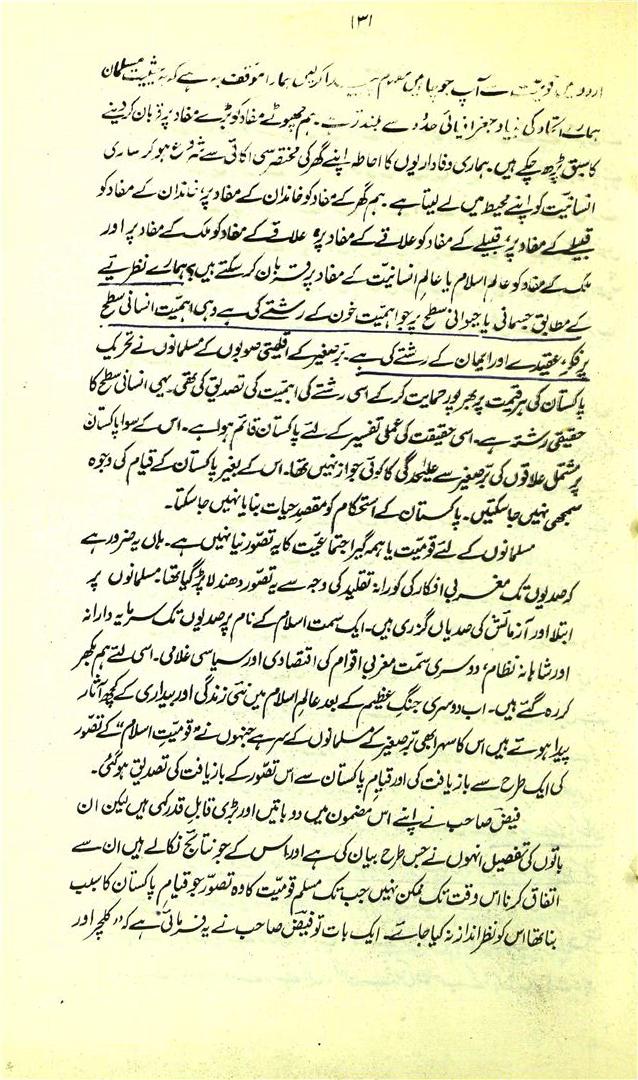 ۱۳۱
اردو میں قومیّت سے آپ جو چاہیں مفہوم پیدا کریں ہمارا موقف یہ ہے کہ بہ حیثیت مسلمان
ہمارے اتحاد کی بنیاد جغرافیائی حدود سے بلند تر ہے۔ ہم چھوٹے مفاد کو بڑے مفاد پر قربان کر دینے
کا سبق پڑھ چکے ہیں۔ ہماری وفاداریوں کا احاطہ اپنے گھر کی مختصر سی اکائی سے شروع ہو کر ساری
انسانیّت کو اپنے محیط میں لے لیتا ہے۔ ہم گھر کے مفاد کو خاندان کے مفاد پر، خاندان کے مفاد کو
قبیلے کے مفاد پر، قبیلے کے مفاد کو علاقے کے مفاد پر، علاقے کے مفاد کو ملک کے مفاد پر اور
ملک کے مفاد کو عالمِ اسلام یا عالمِ انسانیّت کے مفاد پر قربان کر سکتے ہیں۔ ہمارے نظریے
کے مطابق جسمانی یا حیوانی سطح پر جو اہمیت خون کے رشتے کی ہے وہی اہمیت انسانی سطح
پر فکر، عقیدے اور ایمان کے رشتے کی ہے۔ برّصغیر کے اقلیتی صوبوں کے مسلمانوں نے تحریک
پاکستان کی ہر قیمت پر بھرپور حمایت کر کے اسی رشتے کی اہمیت کی تصدیق کی تھی۔ یہی انسانی سطح کا
حقیقی رشتہ ہے۔ اسی حقیقت کی عملی تفسیر کے لئے پاکستان قائم ہوا ہے۔ اس کے سوا پاکستان
پر مشتمل علاقوں کی برّصغیر سے علیٰحدگی کا کوئی جواز نہیں تھا۔ اس کے بغیر پاکستان کے قیام کی وجوہ
سمجھی نہیں جا سکتیں۔ پاکستان کے استحکام کو مقصدِ حیات بنایا نہیں جا سکتا۔
مسلمانوں کے لئے قومیّت یا ہمہ گیر اجتماعیّت کا یہ تصوّر نیا نہیں ہے۔ ہاں یہ ضرور ہے
کہ صدیوں تک مغربی افکار کی کورانہ تقلید کی وجہ سے یہ تصوّر دھندلا پڑ گیا تھا۔ مسلمانوں پر
ابتلا اور آزمائش کی صدیاں گزری ہیں۔ ایک سمت اسلام کے نام پر صدیوں تک سرمایہ دارانہ
اور شاہانہ نظام، دوسری سمت مغربی اقوام کی اقتصادی اور سیاسی غلامی۔ اسی لئے ہم بکھر
کر رہ گئے ہیں۔ اب دوسری جنگِ عظیم کے بعد عالمِ اسلام میں نئی زندگی اور بیداری کے کچھ آثار
پیدا ہوئے ہیں اس کا سہرا بھی برّصغیر کے مسلمانوں کے سر ہے جنہوں نے ”قومیّتِ اسلام“ کے تصوّر
کی ایک طرح سے بازیافت کی اور قیامِ پاکستان سے اس تصوّر کے بازیافت کی تصدیق ہو گئی۔
فیضؔ صاحب نے اپنے اس مضمون میں دو باتیں اور بڑی قابلِ قدر کہی ہیں لیکن ان
باتوں کی تفصیل انھوں نے جس طرح بیان کی ہے اور اس کے جو نتائج نکالے ہیں ان سے
اتفاق کرنا اس وقت تک ممکن نہیں جب تک مسلم قومیّت کا وہ تصوّر جو قیامِ پاکستان کا سبب
بنا تھا اس کو نظر انداز نہ کیا جائے۔ ایک بات تو فیضؔ صاحب نے یہ فرمائی ہے کہ ”کلچر اور